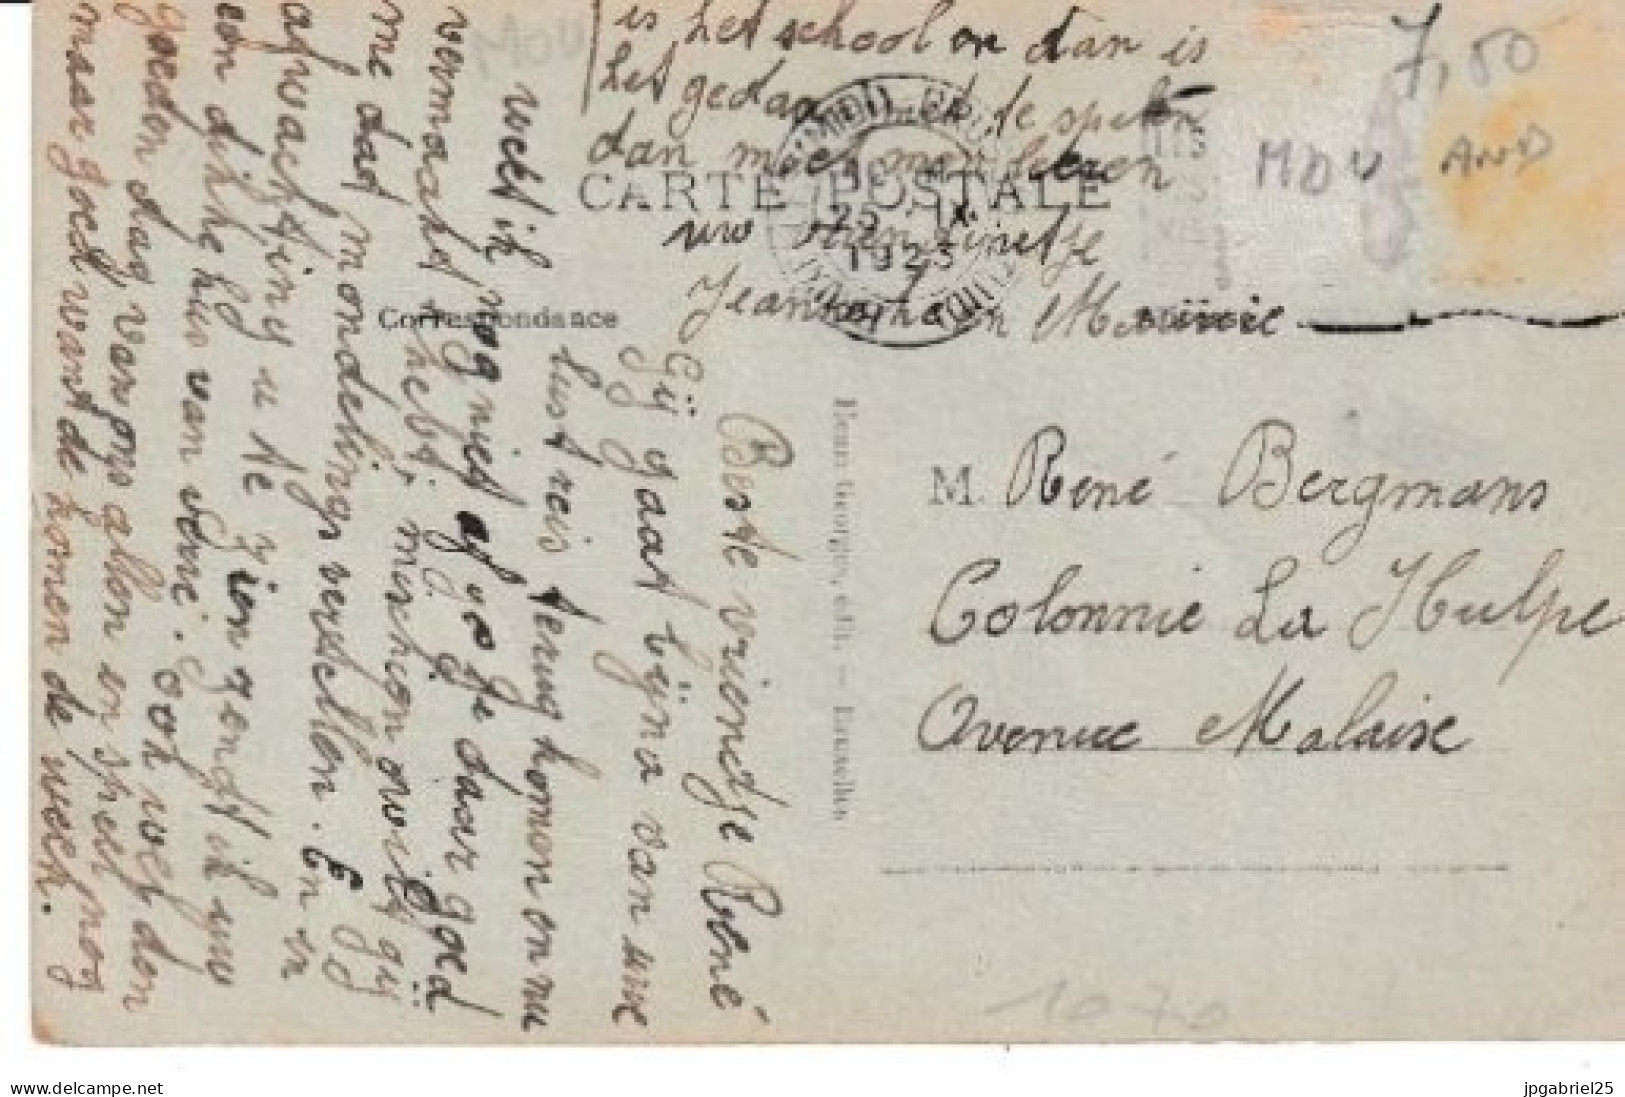 Beste vriendje René
Gij gaat bijna van uwe
lust reis terug komen en nu
weet ik nog niet of ge ge daar goed
vermaakt hebt, mischien omdat gij
me dat mondelings vertellen. En in
afwachting u te zien zendt ik uw
een dikke kus van verre. Ook wel den
goeden dag van ons allen en speel nog
maar goed want de komen de week.
is het school en dan is
het gedaan met de spelen
dan moet men leeren
uw vriendinetje
Jeanne
CARTE POSTALE
25 IX
1923
Correspondance
Henri Georges, édit. – Bruxelles.
M. René Bergmans
Colonnie La Hulpe
Avenue Malaise
MOU
7,50
MOU AND
1070
delcampe.net
jpgabriel25